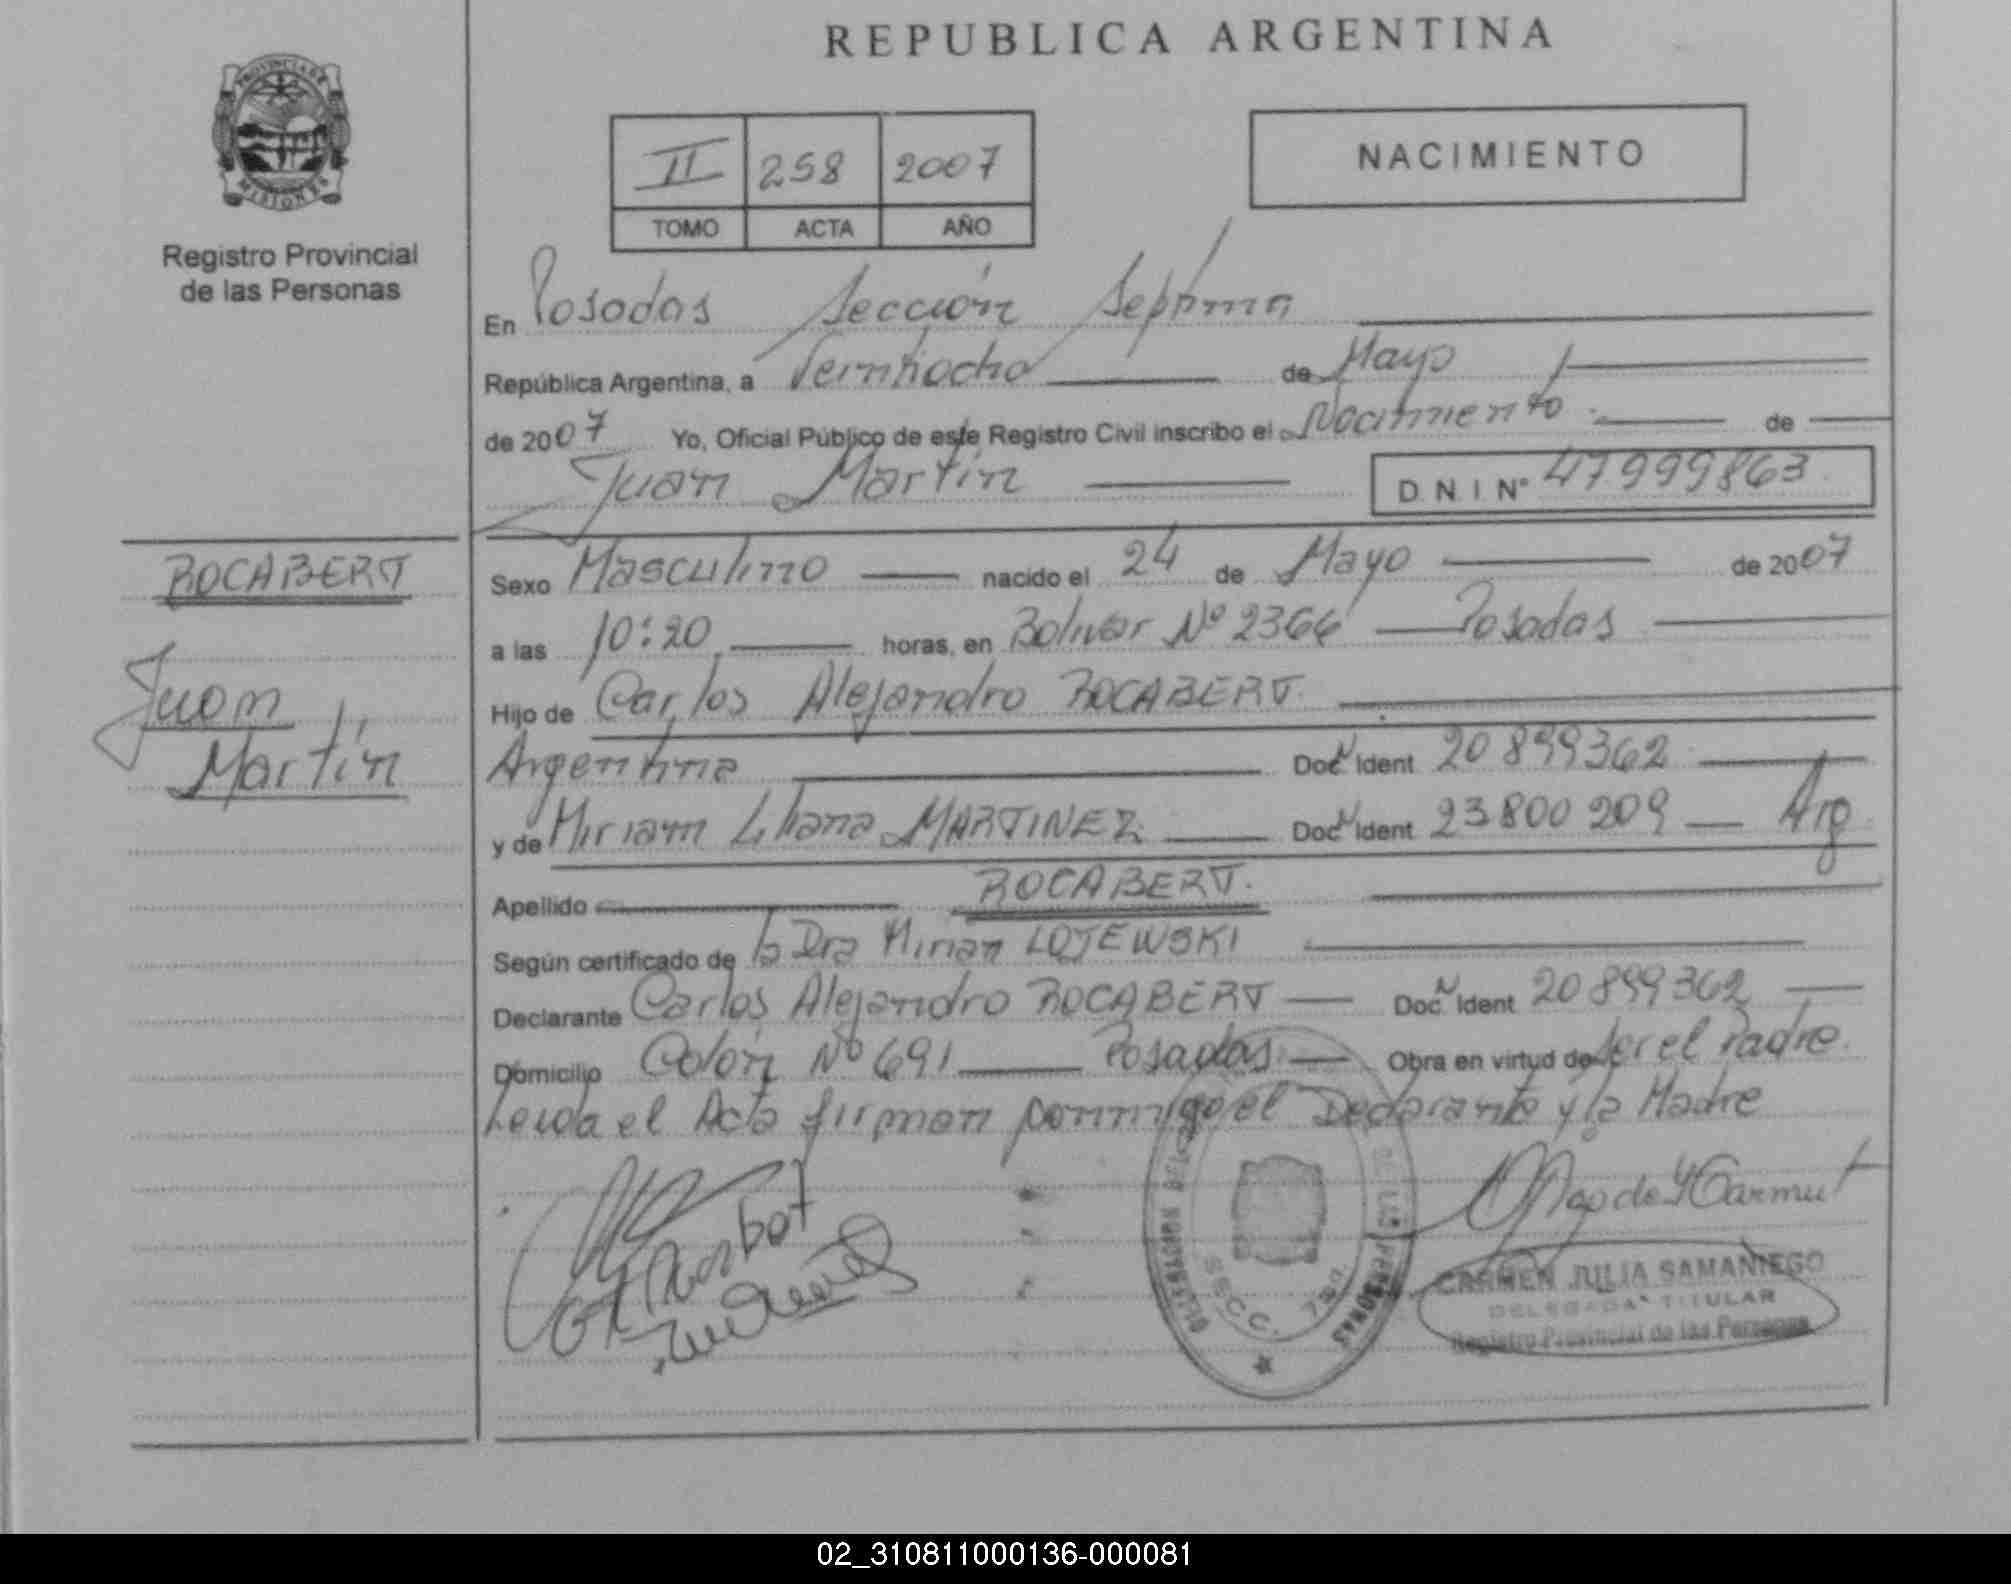 REPUBLICA ARGENTINA
PROVINCIA DE
MISIONES
Registro Provincial
de las Personas
II 258 2007
TOMO ACTA AÑO
NACIMIENTO
En Posadas Sección Septima
República Argentina, a Veintiocho de Mayo
de 2007 Yo, Oficial Público de este Registro Civil inscribo el Nacimiento de
Juan Martín D.N.I Nº 47999863
ROCABERT
Juan
Martín
Sexo Masculino nacido el 24 de Mayo de 2007
a las 10:20 horas, en Bolivar Nº 2366 Posadas
Hijo de Carlos Alejandro ROCABERT.
Argentina Doc. Ident 20899362
y de Miriam Liliana MARTINEZ Doc. Ident 23800209 Arg
Apellido ROCABERT.
Según certificado de la Dra Mirian LOJEWSKI
Declarante Carlos Alejandro ROCABERT Doc. Ident 20899362
Domicilio Colón Nº 691 Posadas Obra en virtud de ser el Padre.
Leida el Acta firman conmigo el Declarante y la Madre
DE LAS PERSONAS
SS.CC. 7
CARMEN JULIA SAMANIEGO
DELEGADA TITULAR
Registro Provincial de las Personas
02_310811000136-000081